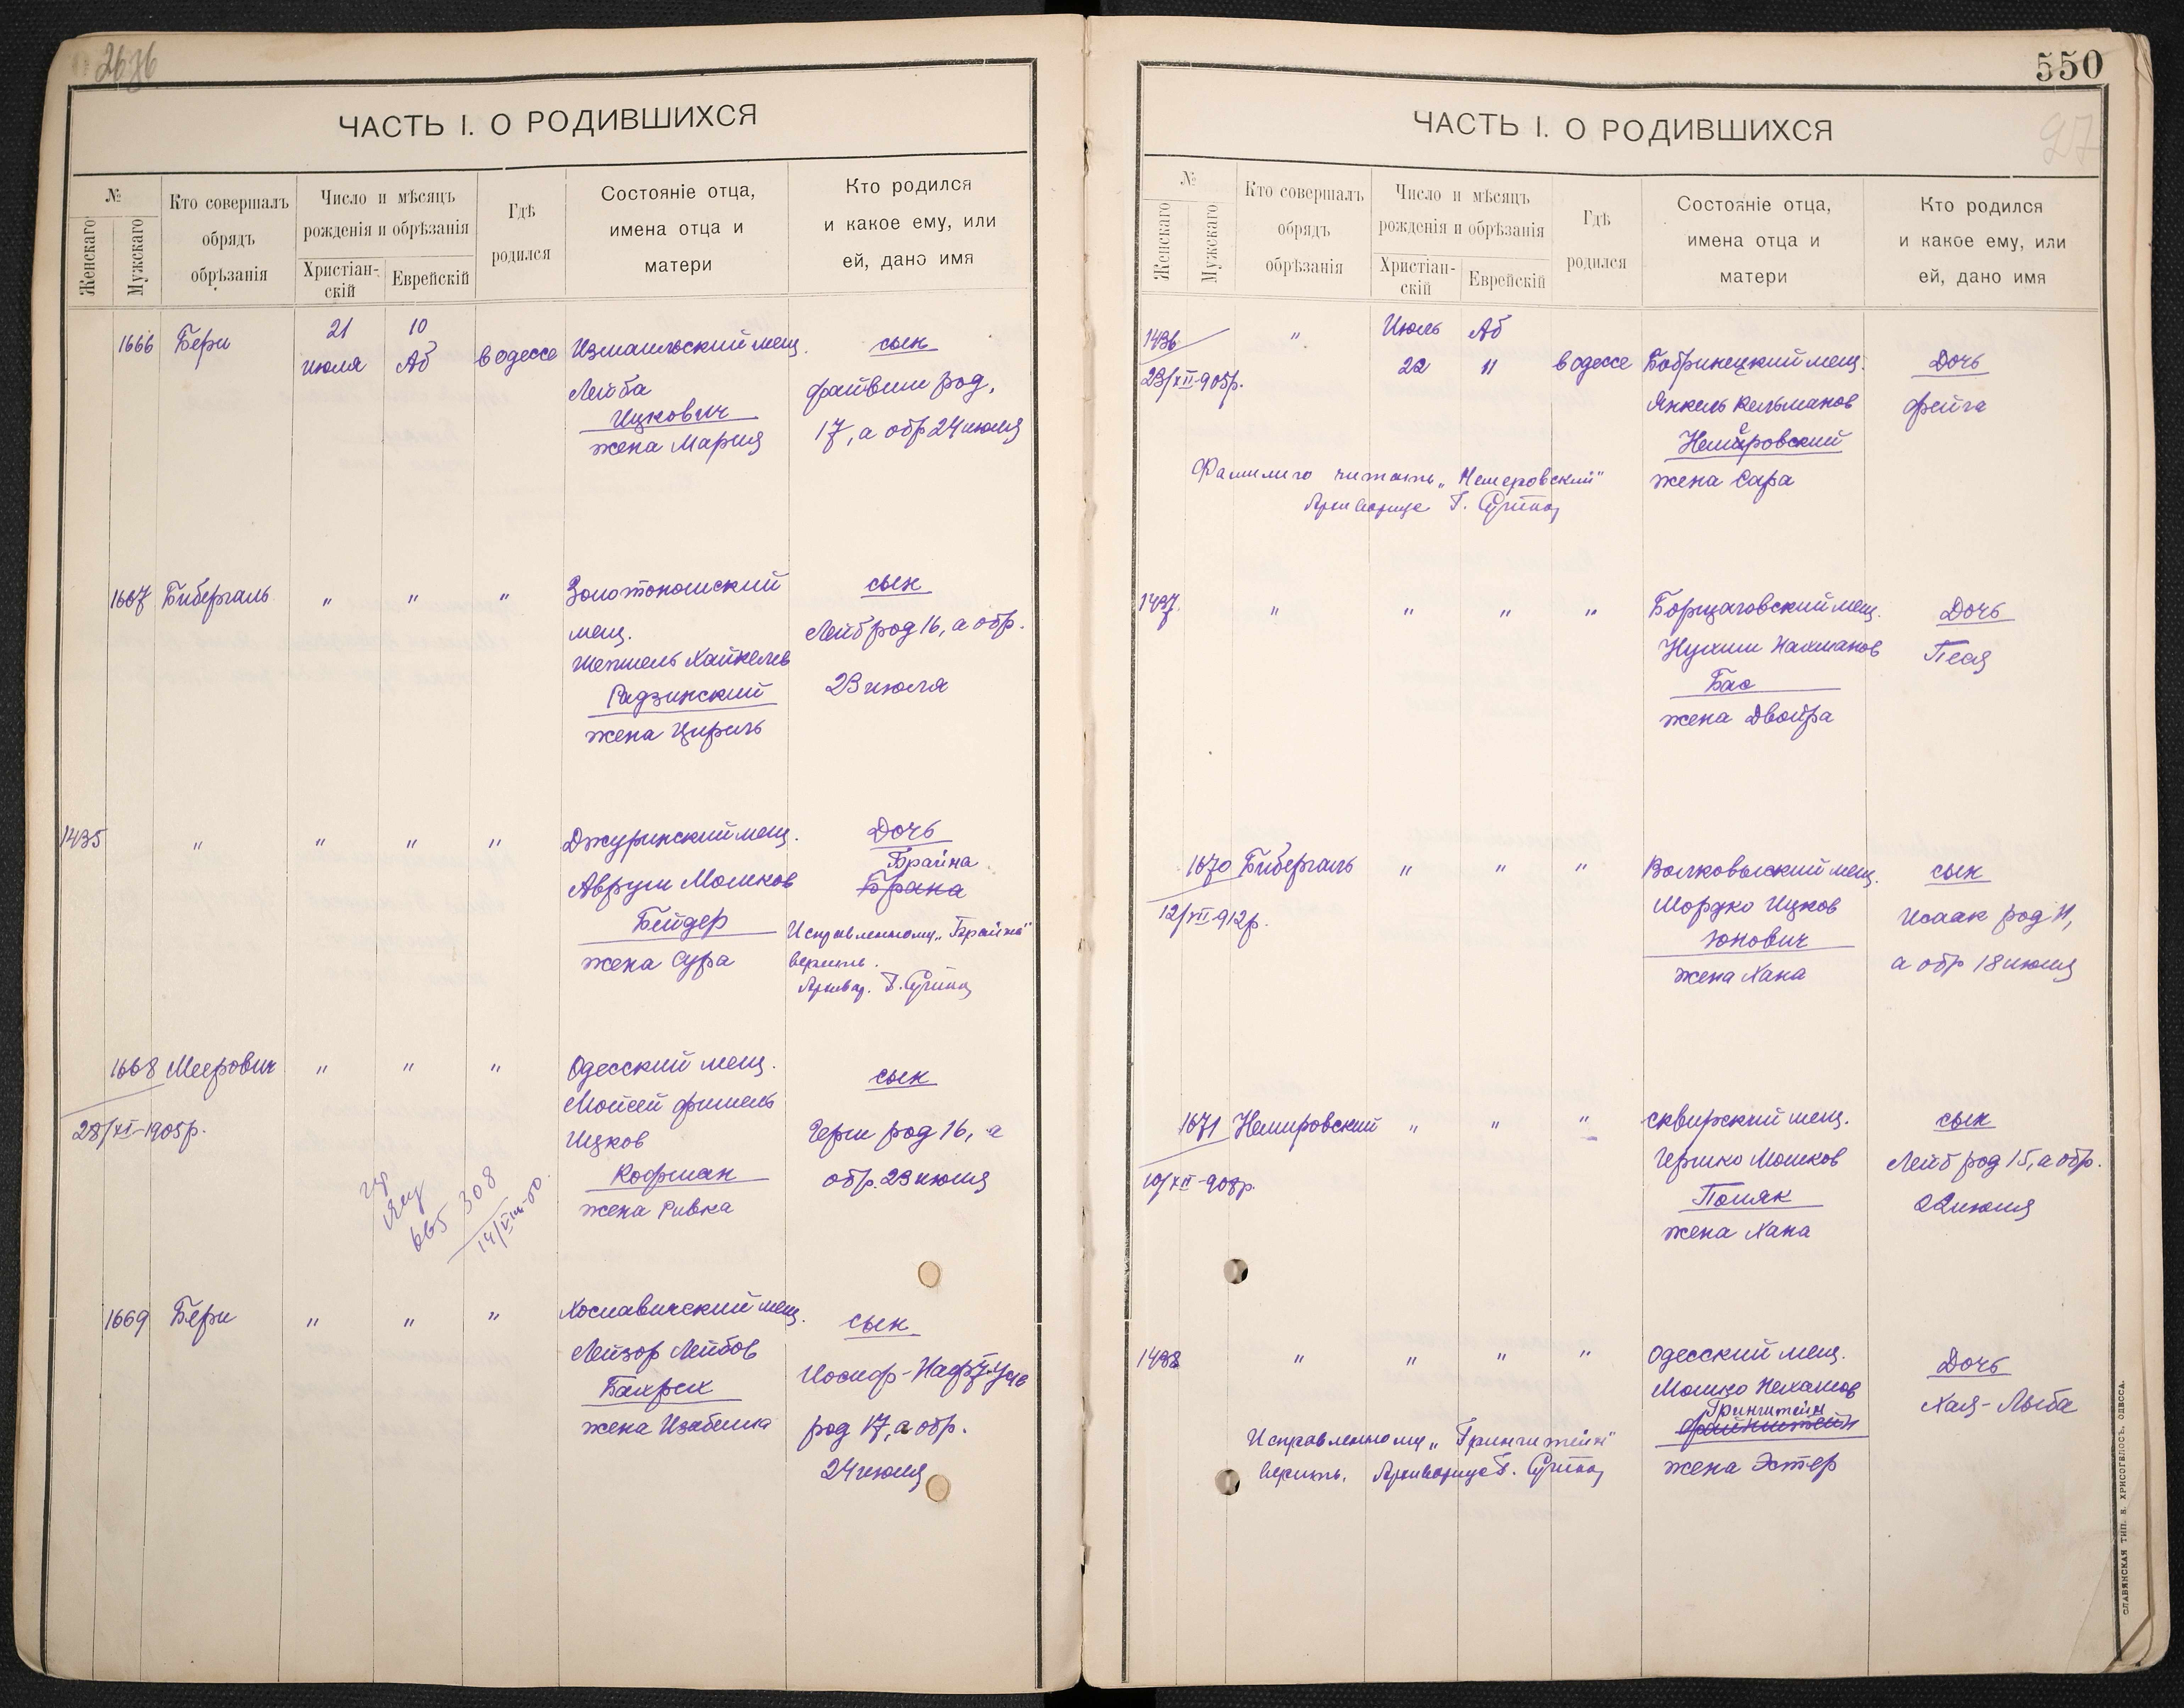 2636
ЧАСТЬ I. О РОДИВШИХСЯ
№
Женскаго
Мужскаго
Кто совершалъ
обрядъ
обрѣзанія
Число и мѣсяцъ
рожденія и обрѣзанія
Христіан-
скій
Еврейскій
Гдѣ
родился
Состояніе отца,
имена отца и
матери
Кто родился
и какое ему, или
ей, дано имя
1666 Бери 21 июля 10 Аб в Одессе Измаильский мещ.
Лейба
Ицкович
жена Мария
сын
Файвиш род.
17, а обр 24 июля
1667 Бибергаль " " " Золотоношский
мещ.
Шепшель Хайкелев
Радзинский
жена Цирель
сын
Лейб род 16, а обр.
23 июля
1435 " " " " Джуринский мещ.
Аврум Мошков
Бейдер
жена Сура
Дочь
Брайна
Брана
Исправленному „Брайна"
верить.
Архивар. Г.
1668 Меерович " " " Одесский мещ.
28/XI-1905р.
Мойсей Фишель
Ицков
Кофман
жена Ривка
сын
Герш род 16, а
обр. 23 июля
665 308
14/VIII-00.
1669 Бери " " " Хославичский мещ.
Лейзор Лейбов
Бахрах
жена Изабелла
сын
Иосиф-Нафтуле
род 17, а обр.
24 июля
550
27
ЧАСТЬ I. О РОДИВШИХСЯ
№
Женскаго
Мужскаго
Кто совершалъ
обрядъ
обрѣзанія
Число и мѣсяцъ
рожденія и обрѣзанія
Христіан-
скій
Еврейскій
Гдѣ
родился
Состояніе отца,
имена отца и
матери
Кто родился
и какое ему, или
ей, дано имя
1436 " Июль 22 Аб 11 в Одессе Бобринецкий мещ.
23/XII-905р.
Янкель Кельманов
Немировский
жена Сара
Дочь
Фейга
Фамилию читать „Немеровский"
Архивариус Г.
1437 " " " " Борщаговский мещ.
Нухим Нахманов
Бас
жена Двойра
Дочь
Песя
1670 Бибергаль " " " Волковыский мещ.
12/VII-912р.
Мордко Ицков
Юнович
жена Хана
сын
Исаак род 11,
а обр 18 июля
1671 Немировский " " " Сквирский мещ.
10/XII-908р.
Гершко Мошков
Поляк
жена Хана
сын
Лейб род 15, а обр.
22 июля
1438 " " " " Одесский мещ.
Мошко Нехамов
Гринштейн
Файнштейн
жена Эстер
Дочь
Хая-Лыба
Исправленному „Гринштейн"
верить. Архивариус Г.
СЛАВЯНСКАЯ ТИП. Е. ХРИСОГЕЛОСЪ, ОДЕССА.